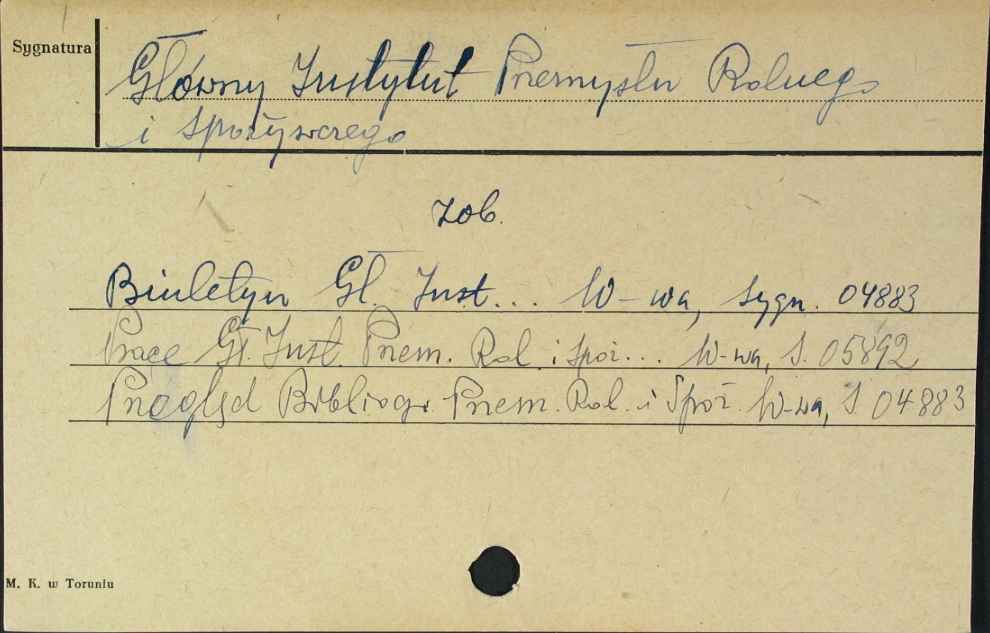 Sygnatura
Główny Instytut Przemysłu Rolnego
i Spożywczego
zob.
Biuletyn Gł. Inst... W-wa, Sygn. 04883
Prace Gł. Inst. Przem. Rol. i Spoż... W-wa, S. 05892
Przegląd Bibliogr. Przem. Rol. i Spoż. W-wa, S. 04883
M. K. w Toruniu